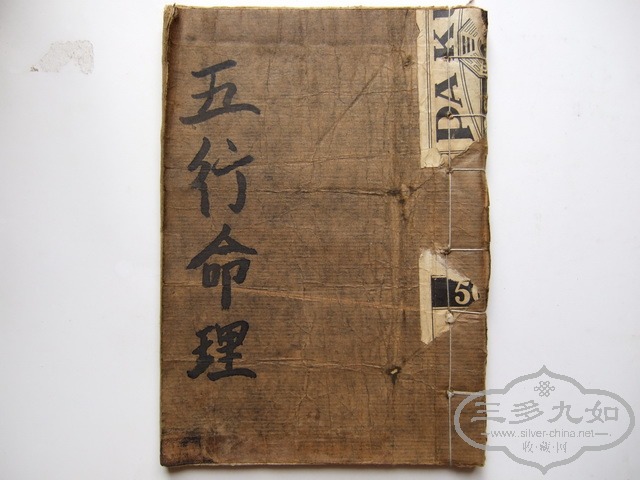 五行命理
PAK
5
三多九如
www.silver-china.net
收·藏·网